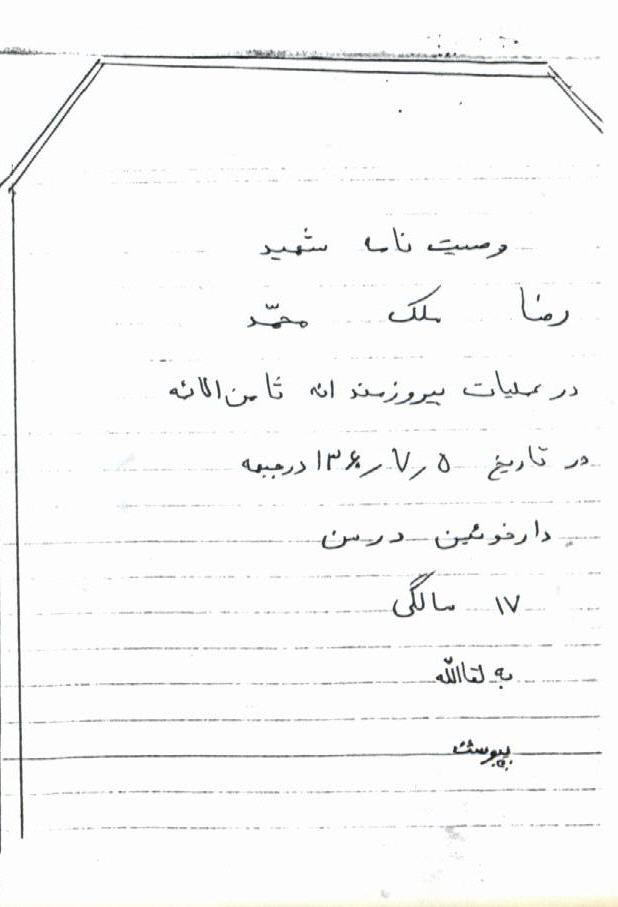 وصیت نامه شهید
رضا ملک محمّد
در عملیات پیروزمندانه ثامن الائمه
در تاریخ ۱۳۶۰٫۷٫۵ درجبهه
دارخوئین درسن
۱۷ سالگی
به لقاالله
پیوست